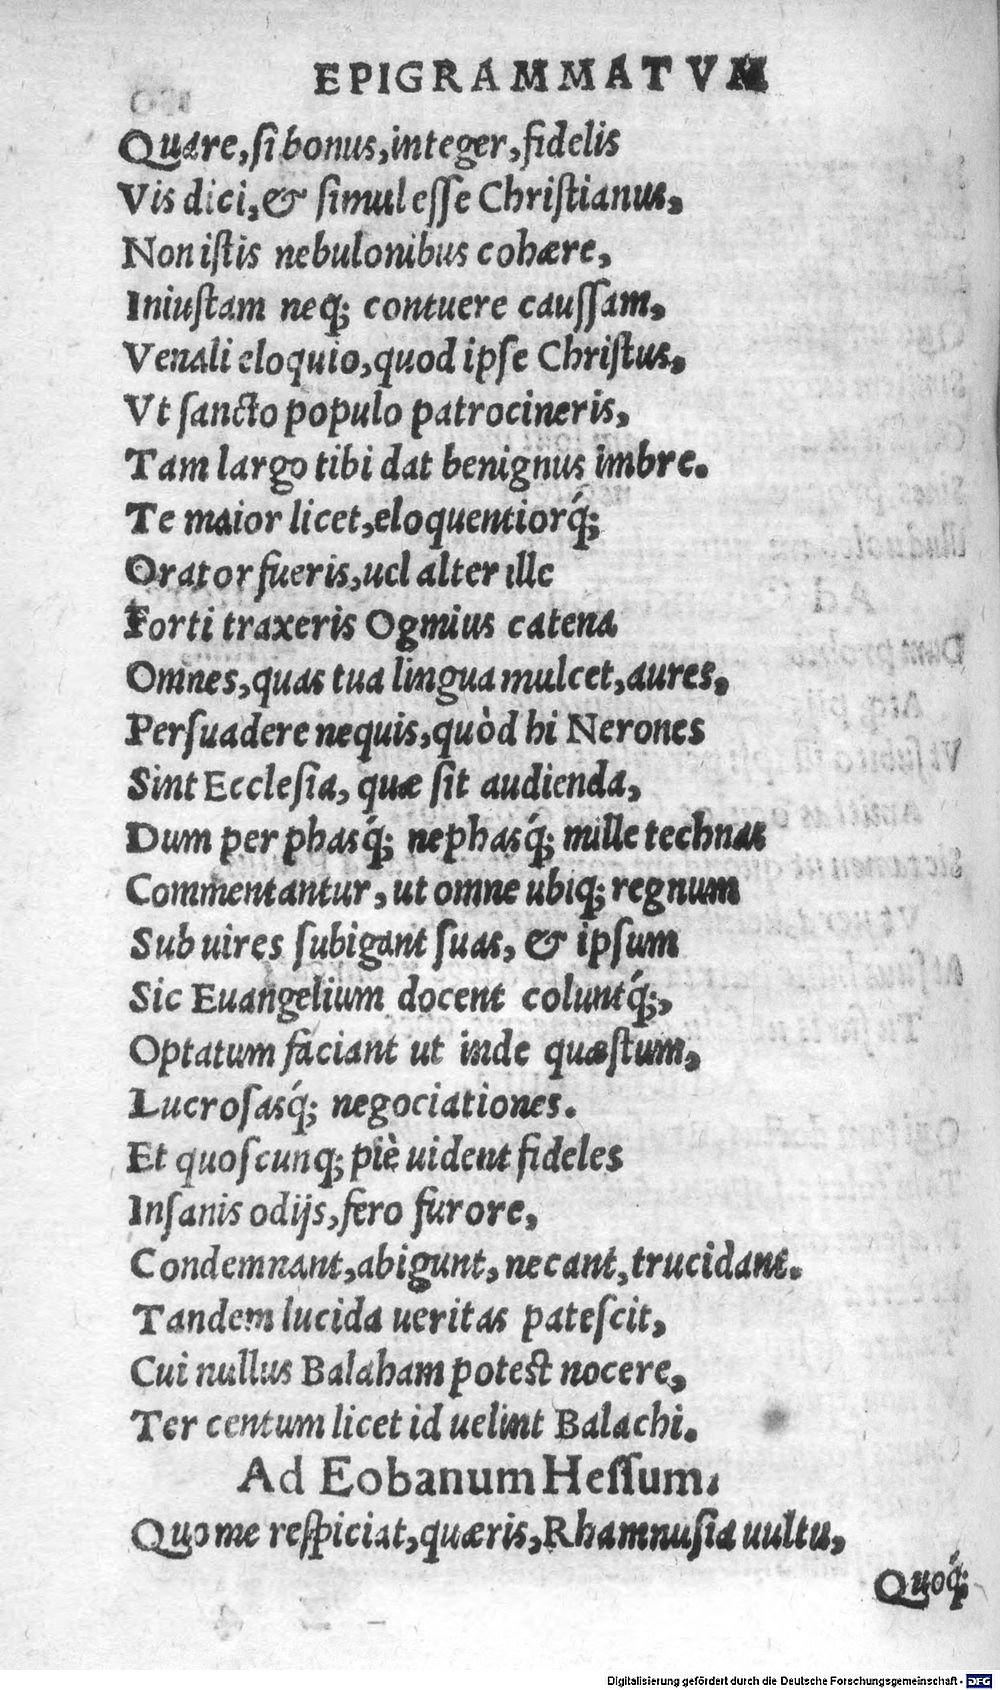 EPIGRAMMATVM
Quare, si bonus, integer, fidelis
Vis dici, & simul esse Christianus,
Non istis nebulonibus cohære,
Iniustam neq; contuere caussam,
Venali eloquio, quod ipse Christus,
Vt sancto populo patrocineris,
Tam largo tibi dat benignus imbre.
Te maior licet, eloquentiorq́;
Orator fueris, uel alter ille
Forti traxeris Ogmius catena
Omnes, quas tua lingua mulcet, aures,
Persuadere nequis, quòd hi Nerones
Sint Ecclesia, quæ sit audienda,
Dum per phasq́; nephasq́; mille technas
Commentantur, ut omne ubiq; regnum
Sub uires subigant suas, & ipsum
Sic Euangelium docent coluntq́;,
Optatum faciant ut inde quæstum,
Lucrosasq́; negociationes.
Et quoscunq; piè uident fideles
Insanis odijs, fero furore,
Condemnant, abigunt, necant, trucidant.
Tandem lucida ueritas patescit,
Cui nullus Balaham potest nocere,
Ter centum licet id uelint Balachi.
Ad Eobanum Hessum.
Quo me respiciat, quæris, Rhamnusia uultu,
Quoq́;
Digitalisierung gefördert durch die Deutsche Forschungsgemeinschaft - DFG